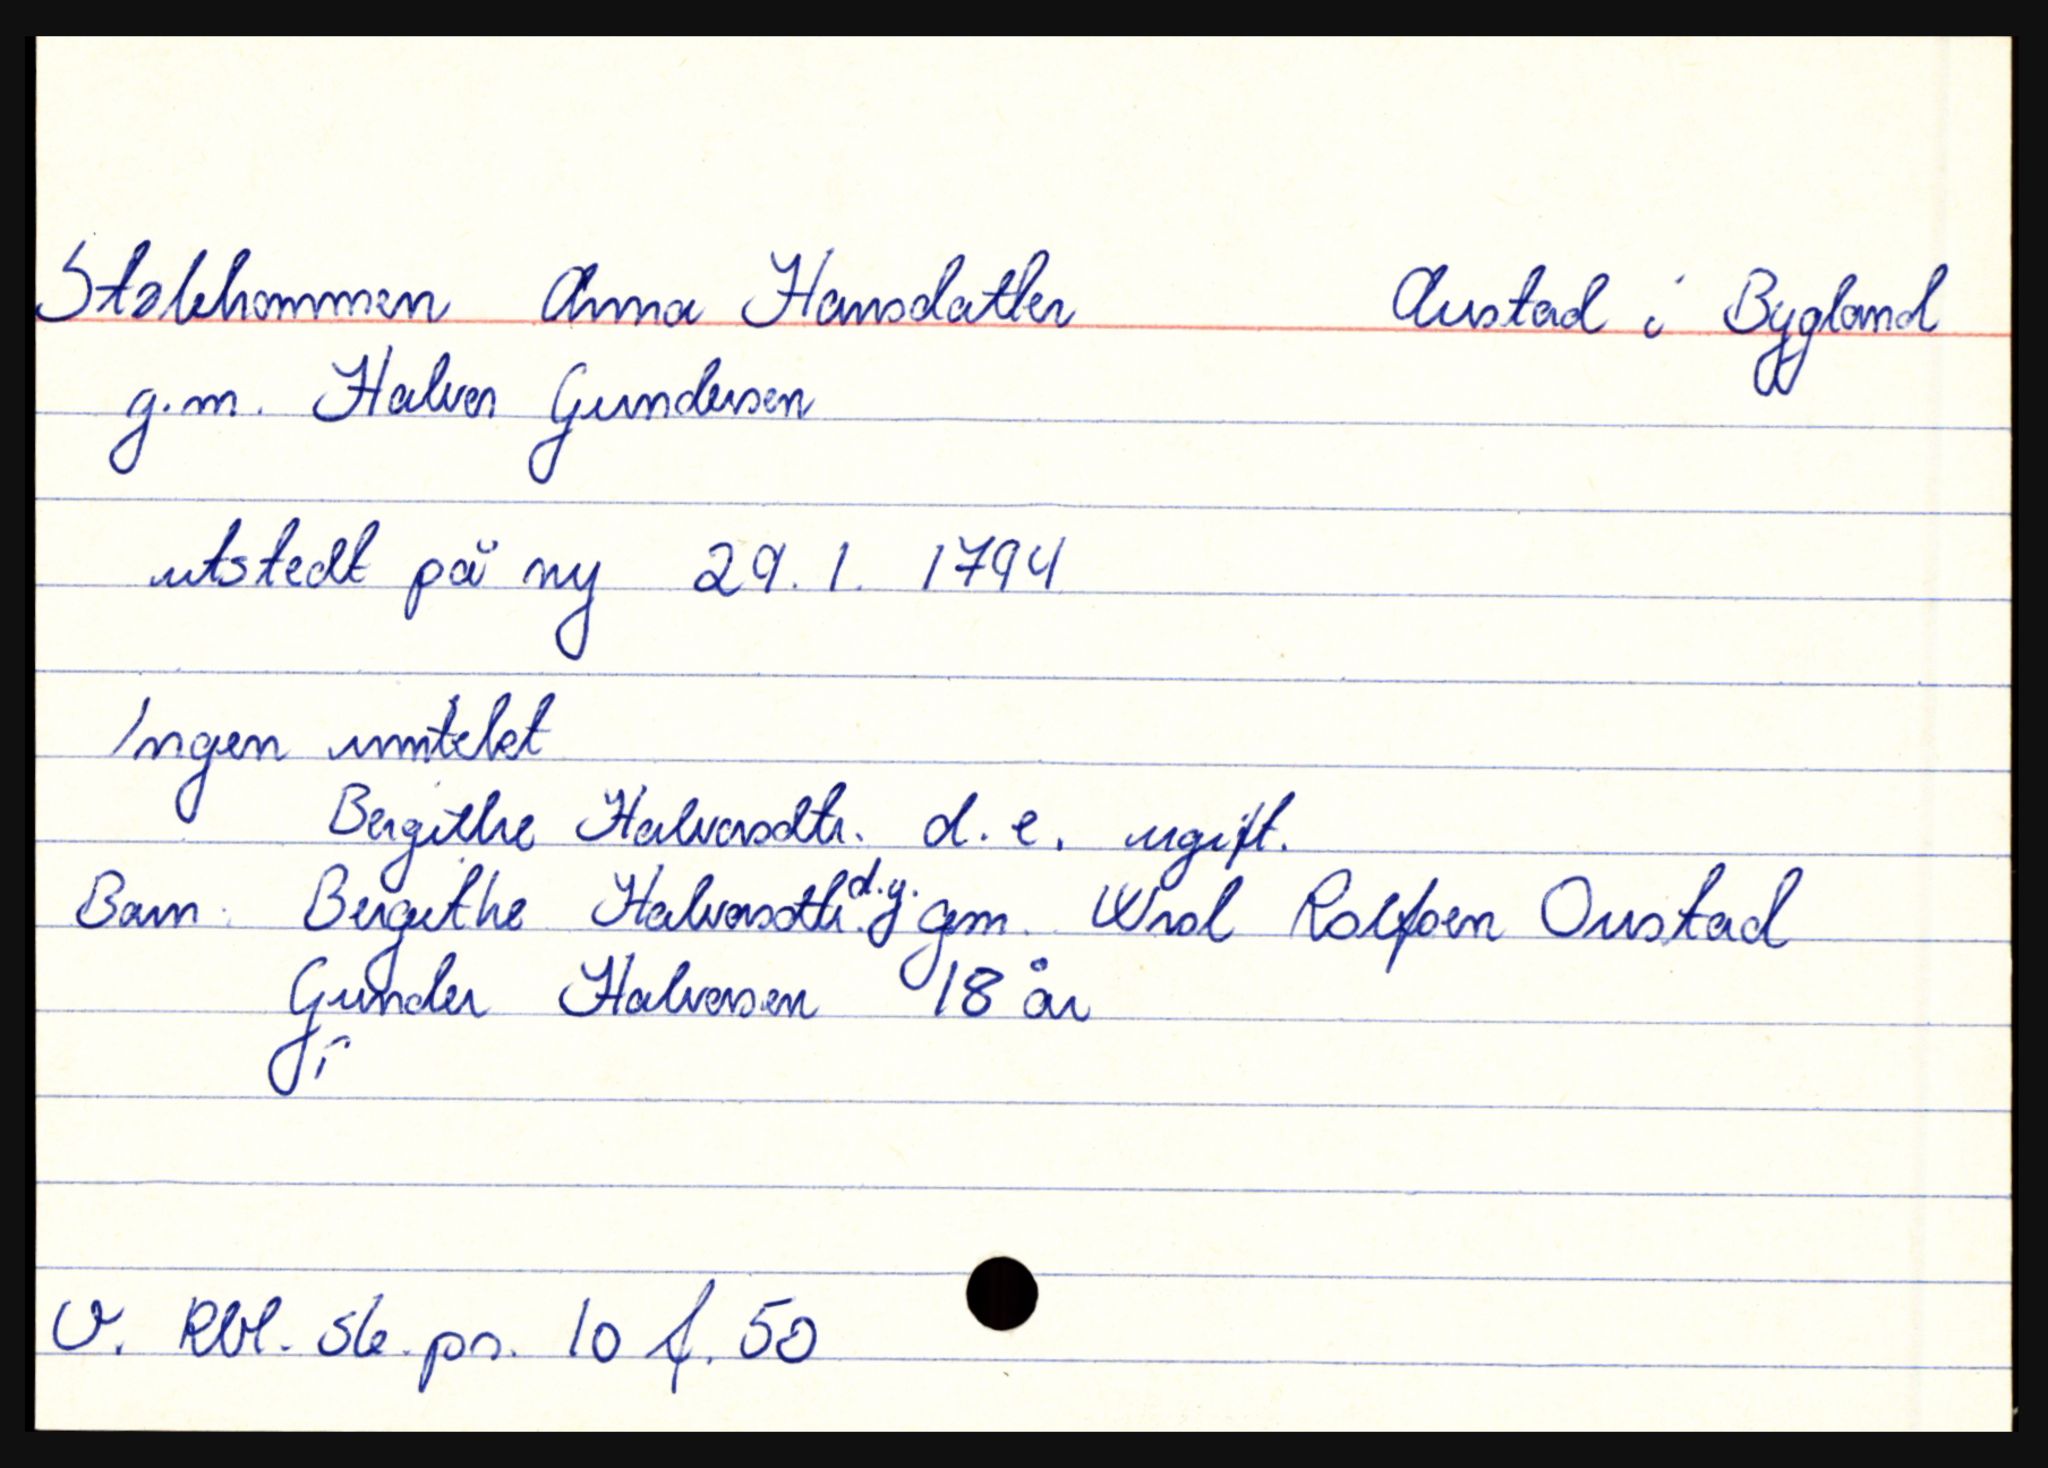 Stokhommen Anna Hansdatter Austad i Bygland
g.m. Halvor Gundersen
utstedt på ny 29. 1. 1794
Ingen inntekt
Bergithe Halvorsdtr. d. e. ugift.
Barn: Bergithe Halvorsdtr. d.y. gm. Wrol Rolfsen Oustad
Gunder Halvorsen 18 år
V. Rbl. sk. pr. 10 f. 50